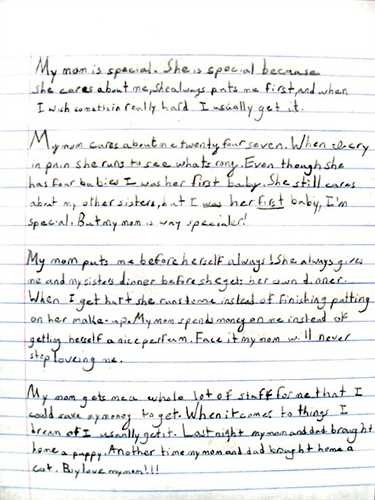 My mom is special. She is special because
she cares about me, she always puts me first, and when
I wish somethin really hard I usually get it.
My mom cares about me twenty four seven. When I cry
in pain she runs to see whats rong. Even though she
has four babies I was her first baby. She still cares
about my other sisters, but I was her first baby, I'm
special. But my mom is way specialer!
My mom puts me before herself always! She always gives
me and my sisters dinner before she gets her own dinner.
When I get hurt she runs to me instead of finishing putting
on her make-up. My mom spends money on me instead of
getting herself a nice perfum. Face it my mom will never
stop loveing me.
My mom gets me a whole lot of staff for me that I
could save my money to get. When it comes to things I
dream of I usually get it. Last night my mom and dad brought
home a puppy. Another time my mom and dad brought home a
cat. Boy love my mom!!!